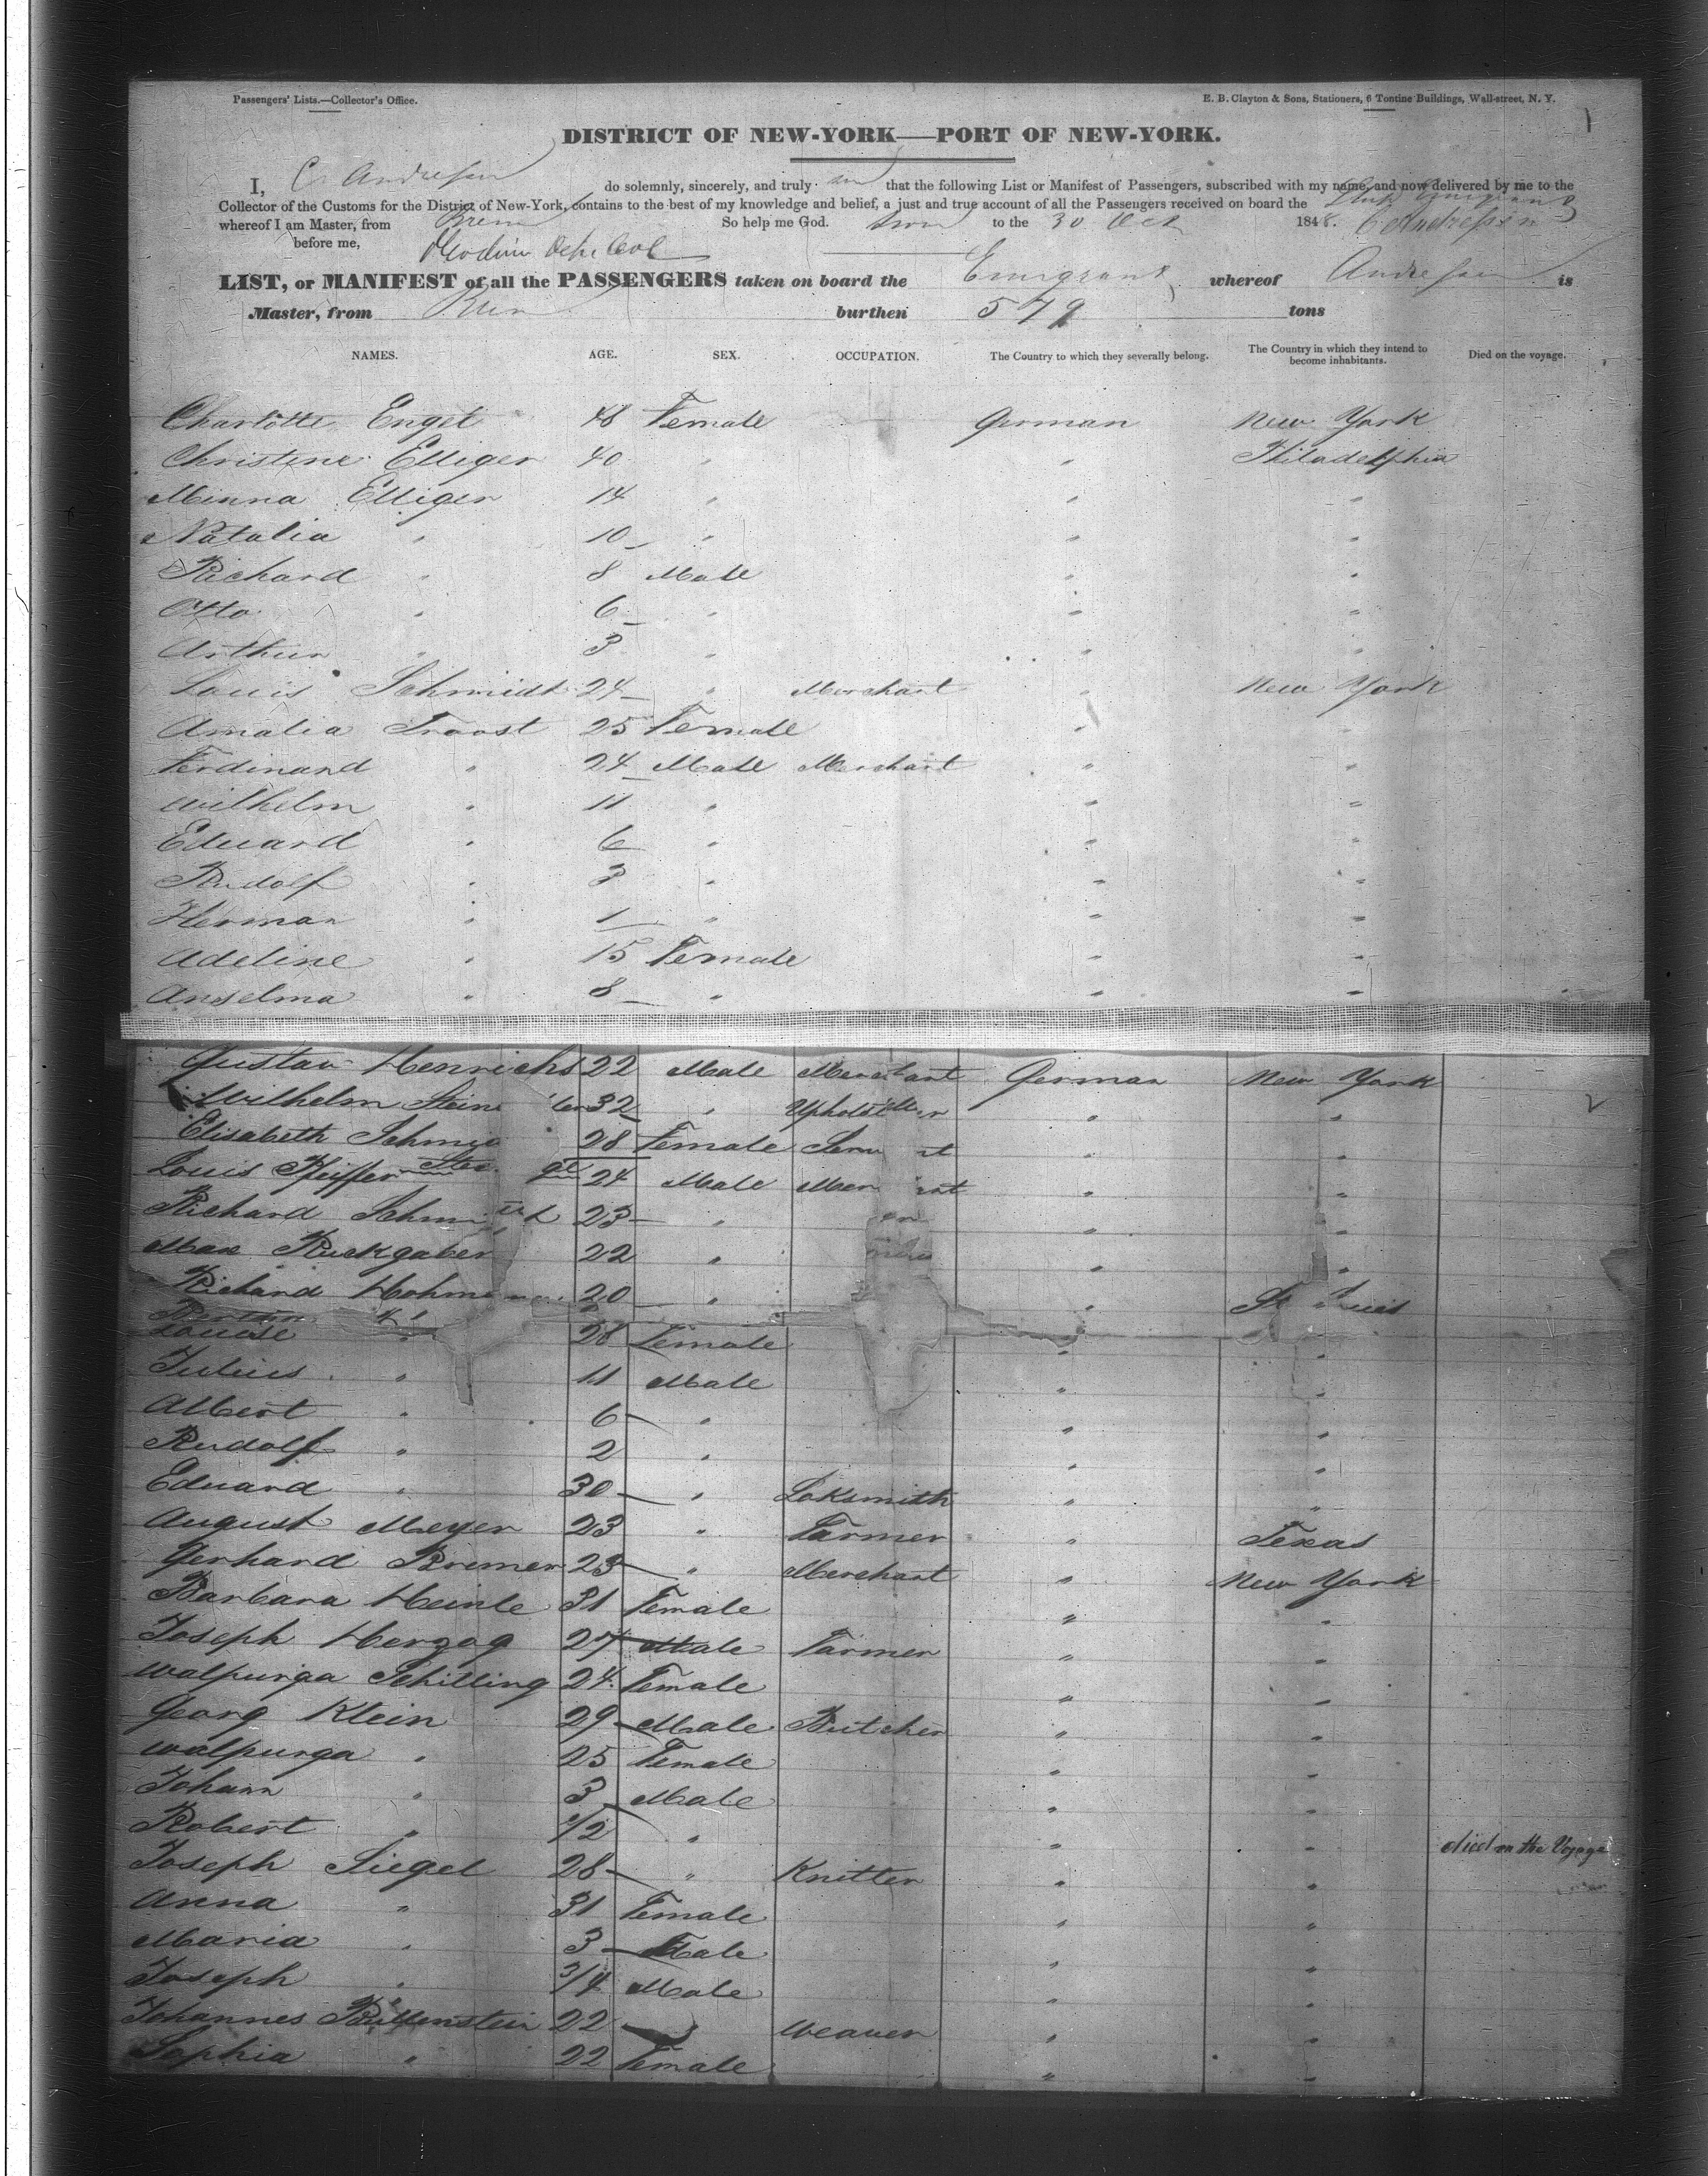 Passengers' Lists.—Collector's Office. E. B. Clayton & Sons, Stationers, 6 Tontine Buildings, Wall-street, N. Y.
1
DISTRICT OF NEW-YORK—PORT OF NEW-YORK.
I, C. Andressen do solemnly, sincerely, and truly that the following List or Manifest of Passengers, subscribed with my name, and now delivered by me to the
Collector of the Customs for the District of New-York, contains to the best of my knowledge and belief, a just and true account of all the Passengers received on board the Ship Emigrant
whereof I am Master, from Brem So help me God. Sworn to the 30 Oct 1848. C Andressen
before me,
LIST, or MANIFEST of all the PASSENGERS taken on board the Emigrant whereof Andressen is
Master, from Brem burthen 579 tons
NAMES. AGE. SEX. OCCUPATION. The Country to which they severally belong. The Country in which they intend to become inhabitants. Died on the voyage.
Charlotte Engel 48 Female German New York
Christine Elliger 40 " " Philadelphia
Minna Elliger 14 " " "
Natalia " 10 " " "
Richard " 8 Male " "
Otto " 6 " " "
Arthur " 3 " " "
Louis Schmidt 24 " Merchant " New York
Amalia Troost 25 Female "
Ferdinand " 24 Male Merchant " "
Wilhelm " 11 " " "
Eduard " 6 " " "
Rudolf " 3 " " "
Herman " 1 " " "
Adeline " 15 Female " "
Anselma " 8 " " "
Gustav Henrichs 22 Male Merchant German New York
2
Wilhelm Stein 32 " Upholsterer " "
Elisabeth Schmid 28 Female Servant " "
Louis Pfeiffer 24 Male Merchant " "
Richard Schmidt 23 " " "
Max Ruckgaber 22 " " "
Richard Hohmann 20 " " St Louis
Louise " 28 Female " "
Julius " 11 Male " "
Albert " 6 " " "
Rudolf " 2 " " "
Eduard " 30 " Loksmith " "
August Meyer 23 " Farmer " Texas
Gerhard Bremer 23 " Merchant " New York
Barbara Heinle 31 Female " "
Joseph Herzog 27 Male Farmer " "
Walpurga Schilling 24 Female " "
Georg Klein 29 Male Butcher " "
Walpurga " 25 Female " "
Johann " 3 Male " "
Robert " 1/2 " " " died on the Voyage
Joseph Siegel 28 " Knitter " "
Anna " 31 Female " "
Maria " 3 Male " "
Joseph " 3/4 Male " "
Johannes 22 " Weaver " "
Sophia " 22 Female " "